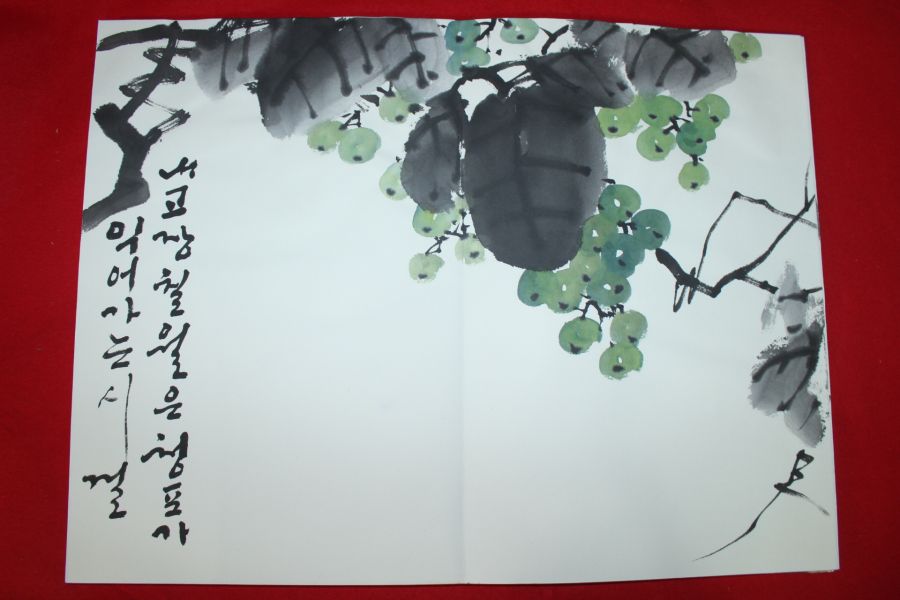 내고장칠월은청포도가
익어가는 시절